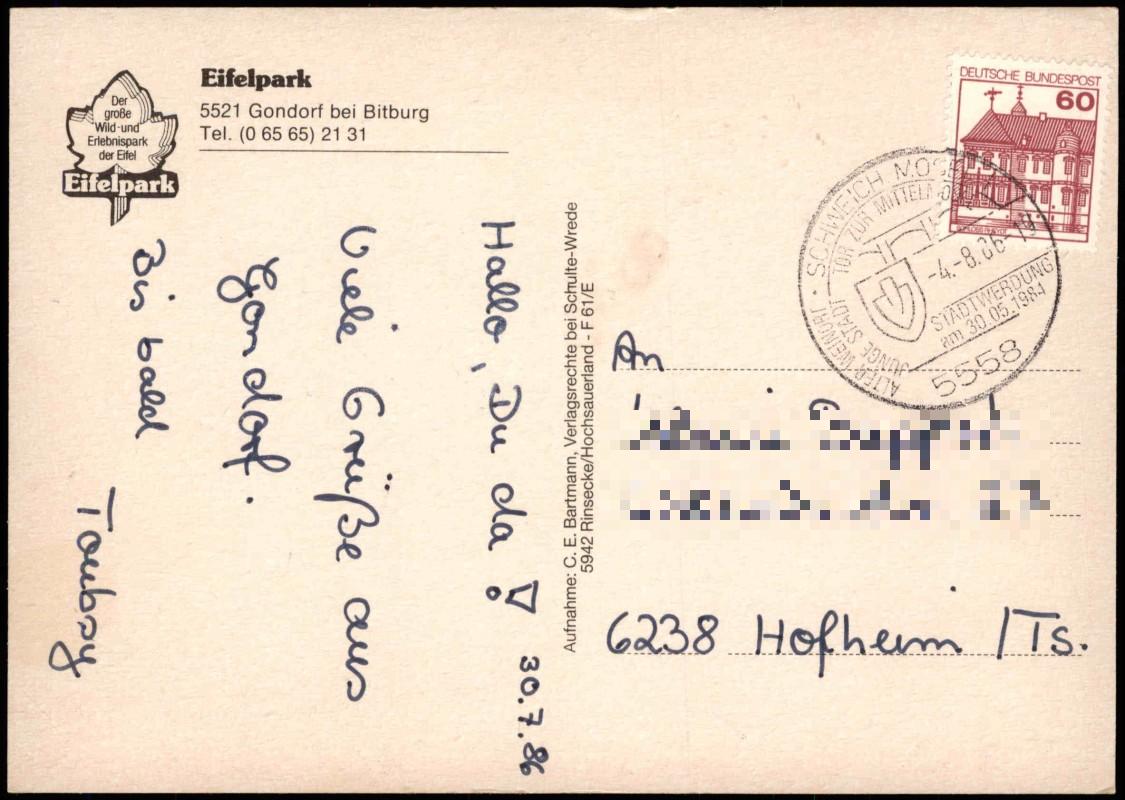 Der
große
Wild-und
Erlebnispark
der Eifel
Eifelpark
Eifelpark
5521 Gondorf bei Bitburg
Tel. (0 65 65) 21 31
30.7.86
Hallo, Du da!
Viele Grüße aus
Gondorf.
Bis bald
Aufnahme: C. E. Bartmann, Verlagsrechte bei Schulte-Wrede
5942 Rinsecke/Hochsauerland - F 61/E
DEUTSCHE BUNDESPOST
60
SCHWEICH MOSEL
TOR ZUR MITTELMOSEL
-4.-8.86-19
STADTWERDUNG
am 30.05.1984
ALTER WEINORT
JUNGE STADT
5558
An
6238 Hofheim /Ts.